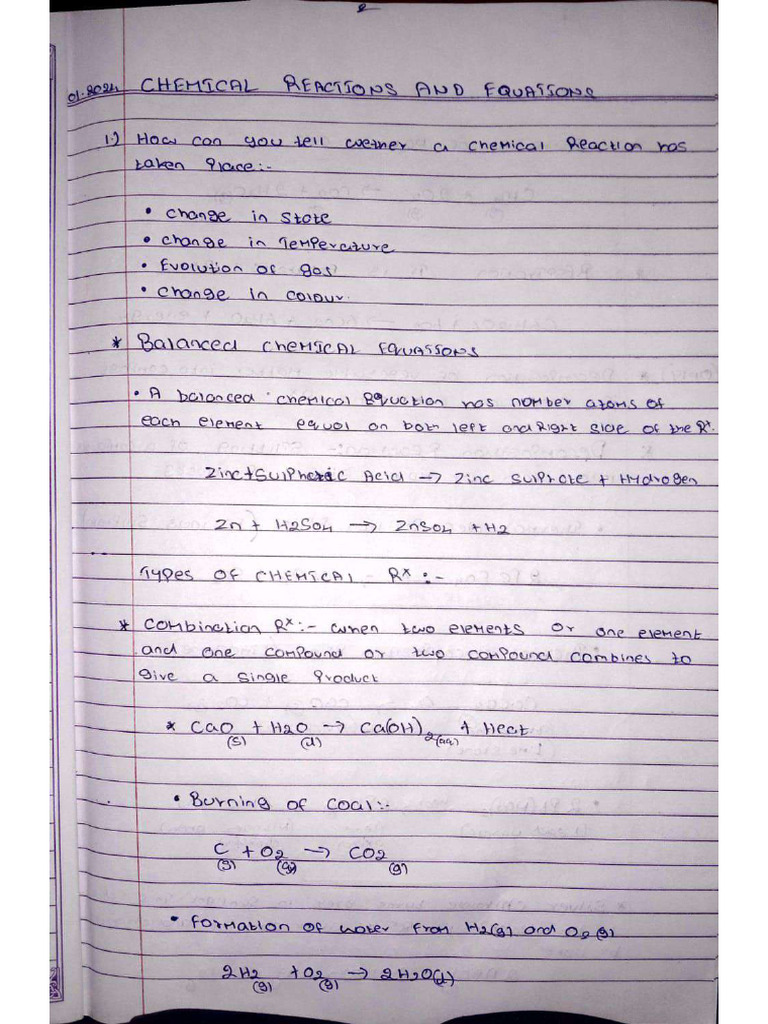 2
01.2024 CHEMICAL REACTIONS AND EQUATIONS
1.) How can you tell wether a chemical Reaction has
taken Place:-
• Change in State
• Change in Temperature
• Evolution of gas
• Change in colour.
* Balanced CHEMICAL EQUATIONS
• A balanced chemical Equation has number atoms of
each element equal on both left and Right side of the Rˣ.
Zinc + Sulphuric Acid → Zinc Sulphate + Hydrogen
Zn + H2SO4 → ZnSO4 + H2
Types OF CHEMICAL Rˣ :-
* Combination Rˣ :- When two elements or one element
and one compound or two compound combines to
give a Single Product
* CaO(s) + H2O(l) → Ca(OH)2(aq) + Heat
• Burning of Coal:-
C(s) + O2(g) → CO2(g)
• Formation of water from H2(g) and O2(g)
2H2(g) + O2(g) → 2H2O(l)